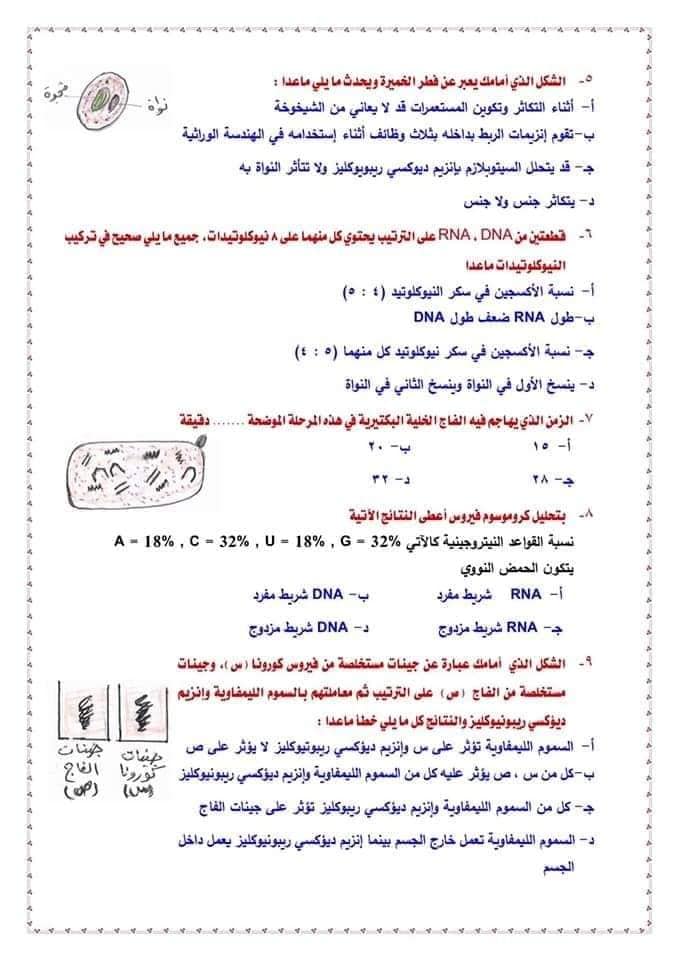 ٥- الشكل الذي أمامك يعبر عن فطر الخميرة ويحدث ما يلي ماعدا :
فجوة
نواة
أ- أثناء التكاثر وتكوين المستعمرات قد لا يعاني من الشيخوخة
ب-تقوم إنزيمات الربط بداخله بثلاث وظائف أثناء إستخدامه في الهندسة الوراثية
جـ- قد يتحلل السيتوبلازم بإنزيم ديوكسي ريبويوكليز ولا تتأثر النواة به
د- يتكاثر جنس ولا جنس
٦- قطعتين من RNA ، DNA على الترتيب يحتوي كل منهما على ٨ نيوكلوتيدات، جميع ما يلي صحيح في تركيب
النيوكلوتيدات ماعدا
أ- نسبة الأكسجين في سكر النيوكلوتيد (٤ : ٥)
ب-طول RNA ضعف طول DNA
جـ- نسبة الأكسجين في سكر نيوكلوتيد كل منهما (٥ : ٤)
د- ينسخ الأول في النواة وينسخ الثاني في النواة
٧- الزمن الذي يهاجم فيه الفاج الخلية البكتيرية في هذه المرحلة الموضحة ....... دقيقة
أ- ١٥ ب- ٢٠
جـ- ٢٨ د- ٣٢
٨- بتحليل كروموسوم فيروس أعطى النتائج الآتية
نسبة القواعد النيتروجينية كالآتي A = 18% , C = 32% , U = 18% , G = 32%
يتكون الحمض النووي
أ- RNA شريط مفرد ب- DNA شريط مفرد
جـ- RNA شريط مزدوج د- DNA شريط مزدوج
٩- الشكل الذي أمامك عبارة عن جينات مستخلصة من فيروس كورونا (س)، وجينات
مستخلصة من الفاج (ص) على الترتيب ثم معاملتهم بالسموم الليمفاوية وإنزيم
ديؤكسي ريبونيوكليز والنتائج كل ما يلي خطأ ماعدا :
جينات
كورونا
(س)
جينات
الفاج
(ص)
أ- السموم الليمفاوية تؤثر على س وإنزيم ديؤكسي ريبوتيوكليز لا يؤثر على ص
ب-كل من س ، ص يؤثر عليه كل من السموم الليمفاوية وإنزيم ديؤكسي ريبونيوكليز
جـ- كل من السموم الليمفاوية وإنزيم ديؤكسي ريبوكليز تؤثر على جينات الفاج
د- السموم الليمفاوية تعمل خارج الجسم بينما إنزيم ديؤكسي ريبونيوكليز يعمل داخل
الجسم